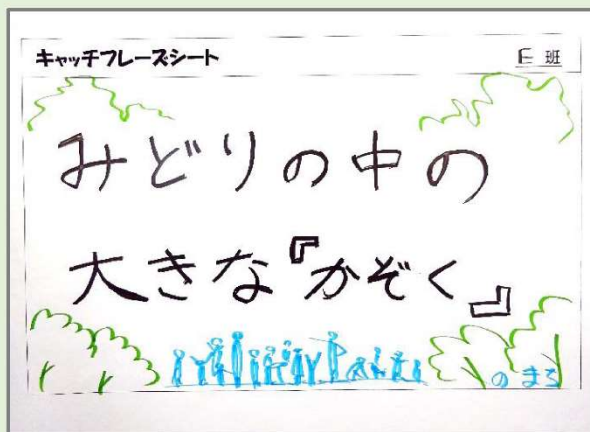 キャッチフレーズシート
E 班
みどりの中の
大きな『かぞく』
のまち